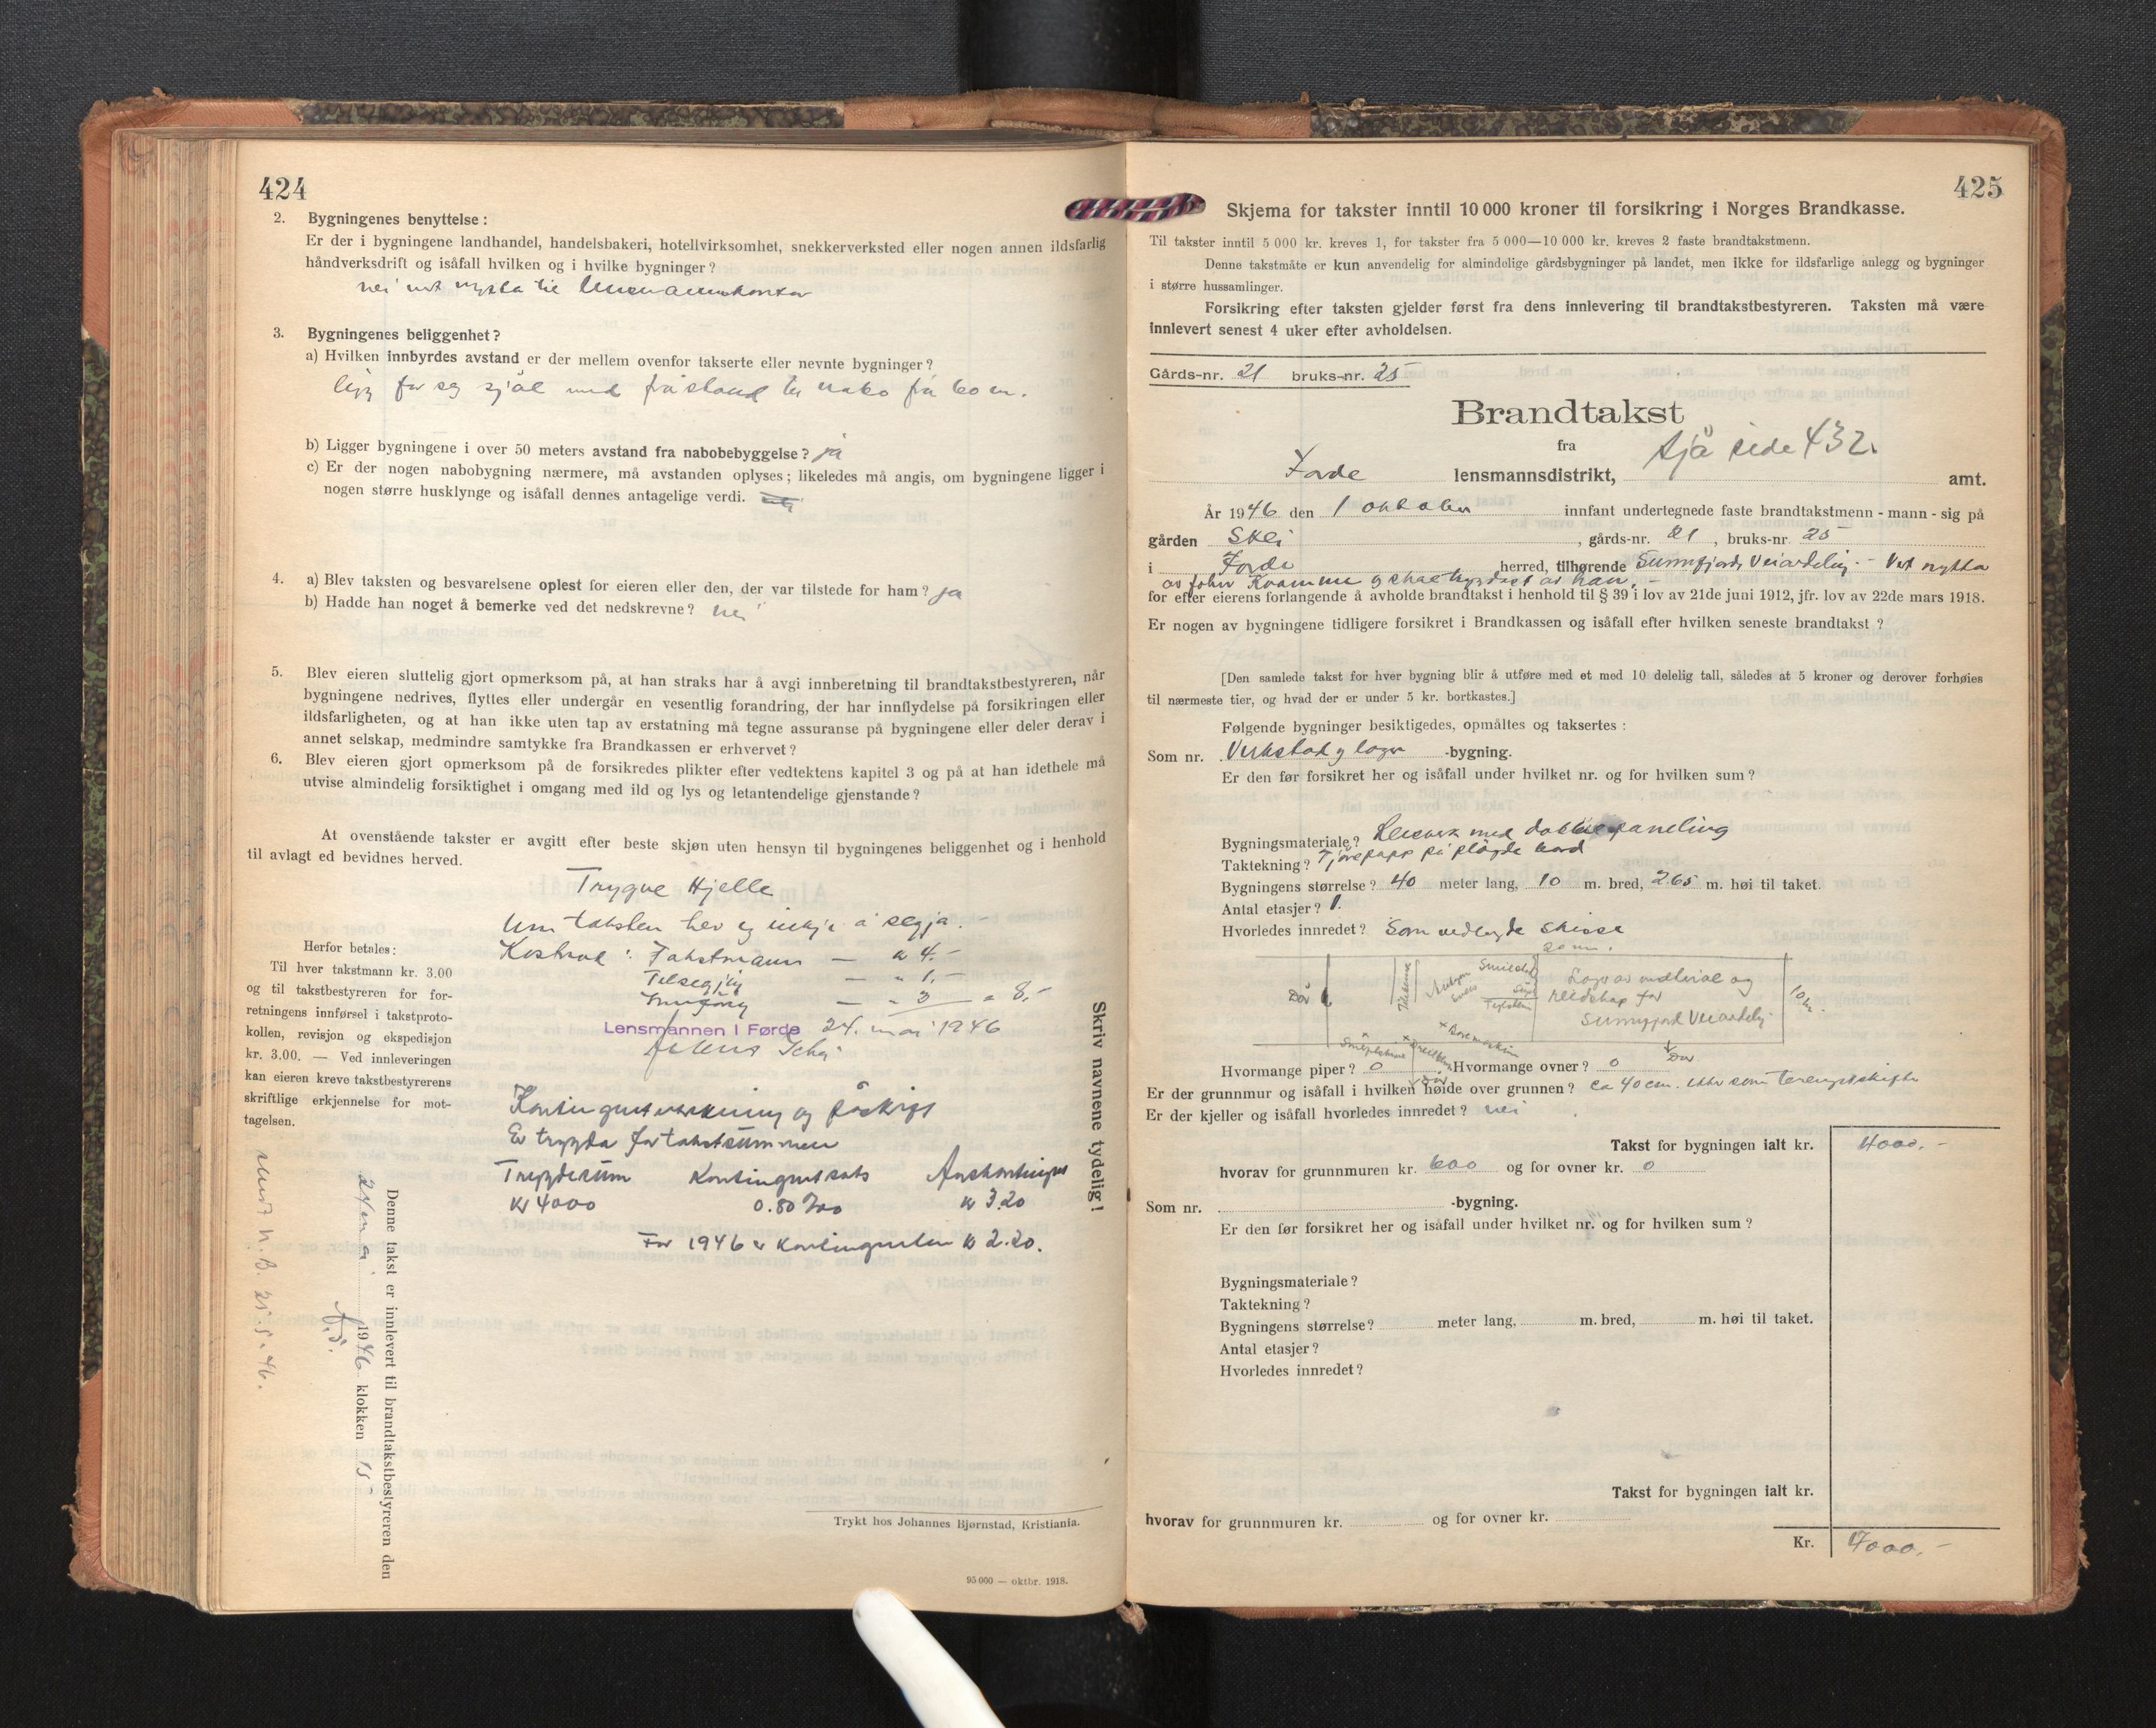 424
2. Bygningenes benyttelse:
Er der i bygningene landhandel, handelsbakeri, hotellvirksomhet, snekkerverksted eller nogen annen ildsfarlig
håndverksdrift og isåfall hvilken og i hvilke bygninger?
nei vert nytta til lensmannskontor
3. Bygningenes beliggenhet?
a) Hvilken innbyrdes avstand er der mellem ovenfor takserte eller nevnte bygninger?
ligg for seg sjøl med fråstand til nabo frå 60 m.
b) Ligger bygningene i over 50 meters avstand fra nabobebyggelse? ja
c) Er der nogen nabobygning nærmere, må avstanden oplyses; likeledes må angis, om bygningene ligger i
nogen større husklynge og isåfall dennes antagelige verdi.
4. a) Blev taksten og besvarelsene oplest for eieren eller den, der var tilstede for ham? ja
b) Hadde han noget å bemerke ved det nedskrevne? nei
5. Blev eieren sluttelig gjort opmerksom på, at han straks har å avgi innberetning til brandtakstbestyreren, når
bygningene nedrives, flyttes eller undergår en vesentlig forandring, der har innflydelse på forsikringen eller
ildsfarligheten, og at han ikke uten tap av erstatning må tegne assuranse på bygningene eller deler derav i
annet selskap, medmindre samtykke fra Brandkassen er erhvervet?
6. Blev eieren gjort opmerksom på de forsikredes plikter efter vedtektens kapitel 3 og på at han idethele må
utvise almindelig forsiktighet i omgang med ild og lys og letantendelige gjenstande?
At ovenstående takster er avgitt efter beste skjøn uten hensyn til bygningenes beliggenhet og i henhold
til avlagt ed bevidnes herved.
Trygve Hjelle
Um taksten hev eg inkje å segja.
Kostnad: Takstmann — kr 4.-
Tilsegjing — " 1.-
Innføring — " 3 = 8,-
Lensmannen i Førde 24. mai 1946
Herfor betales:
Til hver takstmann kr. 3.00
og til takstbestyreren for for-
retningens innførsel i takstproto-
kollen, revisjon og ekspedisjon
kr. 3.00. — Ved innleveringen
kan eieren kreve takstbestyrerens
skriftlige erkjennelse for mot-
tagelsen.
Kontingentutrekning og påskrift
Er trygda for takstsummen
Trygdesum Kontingentsats Årskontingent
Kr 4000 0.80 ‰ kr 3.20
For 1946 er kontingenten kr 2.20.
Skriv navnene tydelig!
Denne takst er innlevert til brandtakstbestyreren den
24 mai 1946 klokken 15
Sendt N.B. 25.5.46.
Trykt hos Johannes Bjørnstad, Kristiania.
95 000 — oktbr. 1918.
425
Skjema for takster inntil 10 000 kroner til forsikring i Norges Brandkasse.
Til takster inntil 5 000 kr. kreves 1, for takster fra 5 000—10 000 kr. kreves 2 faste brandtakstmenn.
Denne takstmåte er kun anvendelig for almindelige gårdsbygninger på landet, men ikke for ildsfarlige anlegg og bygninger
i større hussamlinger.
Forsikring efter taksten gjelder først fra dens innlevering til brandtakstbestyreren. Taksten må være
innlevert senest 4 uker efter avholdelsen.
Gårds-nr. 21 bruks-nr. 25
Brandtakst
fra sjå side 432.
Førde lensmannsdistrikt, amt.
År 1946 den 1 oktober innfant undertegnede faste brandtakstmenn - mann - sig på
gården Skei, gårds-nr. 21, bruks-nr. 25
i Førde herred, tilhørende Sunnfjord Veiavdeling. - Vert nytta
av Johan Kvamme og
for efter eierens forlangende å avholde brandtakst i henhold til § 39 i lov av 21de juni 1912, jfr. lov av 22de mars 1918.
Er nogen av bygningene tidligere forsikret i Brandkassen og isåfall efter hvilken seneste brandtakst?
[Den samlede takst for hver bygning blir å utføre med et med 10 delelig tall, således at 5 kroner og derover forhøies
til nærmeste tier, og hvad der er under 5 kr. bortkastes.]
Følgende bygninger besiktigedes, opmåltes og taksertes:
Som nr. Verkstad og lager -bygning.
Er den før forsikret her og isåfall under hvilket nr. og for hvilken sum?
Bygningsmateriale? Reisverk med dobbel paneling
Taktekning? Tjørepapp på pløgde bord
Bygningens størrelse? 40 meter lang, 10 m. bred, 2.65 m. høi til taket.
Antal etasjer? 1.
Hvorledes innredet? Som vedlagde skisse
20 m.
Dør
Smie
Lager av material og
reiskap for
Sunnfjord Veiavdeling
10 m.
Boremaskin
Dør
Dør
Hvormange piper? 0 Hvormange ovner? 0
Er der grunnmur og isåfall i hvilken høide over grunnen? ca 40 cm. etter som terenget skifte
Er der kjeller og isåfall hvorledes innredet? nei
Takst for bygningen ialt kr. 4000.-
hvorav for grunnmuren kr. 600 og for ovner kr. 0
Som nr. -bygning.
Er den før forsikret her og isåfall under hvilket nr. og for hvilken sum?
Bygningsmateriale?
Taktekning?
Bygningens størrelse? meter lang, m. bred, m. høi til taket.
Antal etasjer?
Hvorledes innredet?
Takst for bygningen ialt kr.
hvorav for grunnmuren kr. og for ovner kr.
Kr. 4000.-